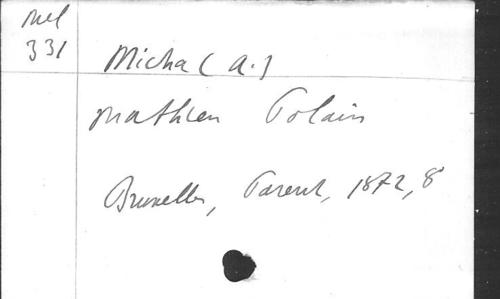 Mél
331
Micha (A.)
Mathieu Polain
Bruxelles, Parent, 1872, 8°